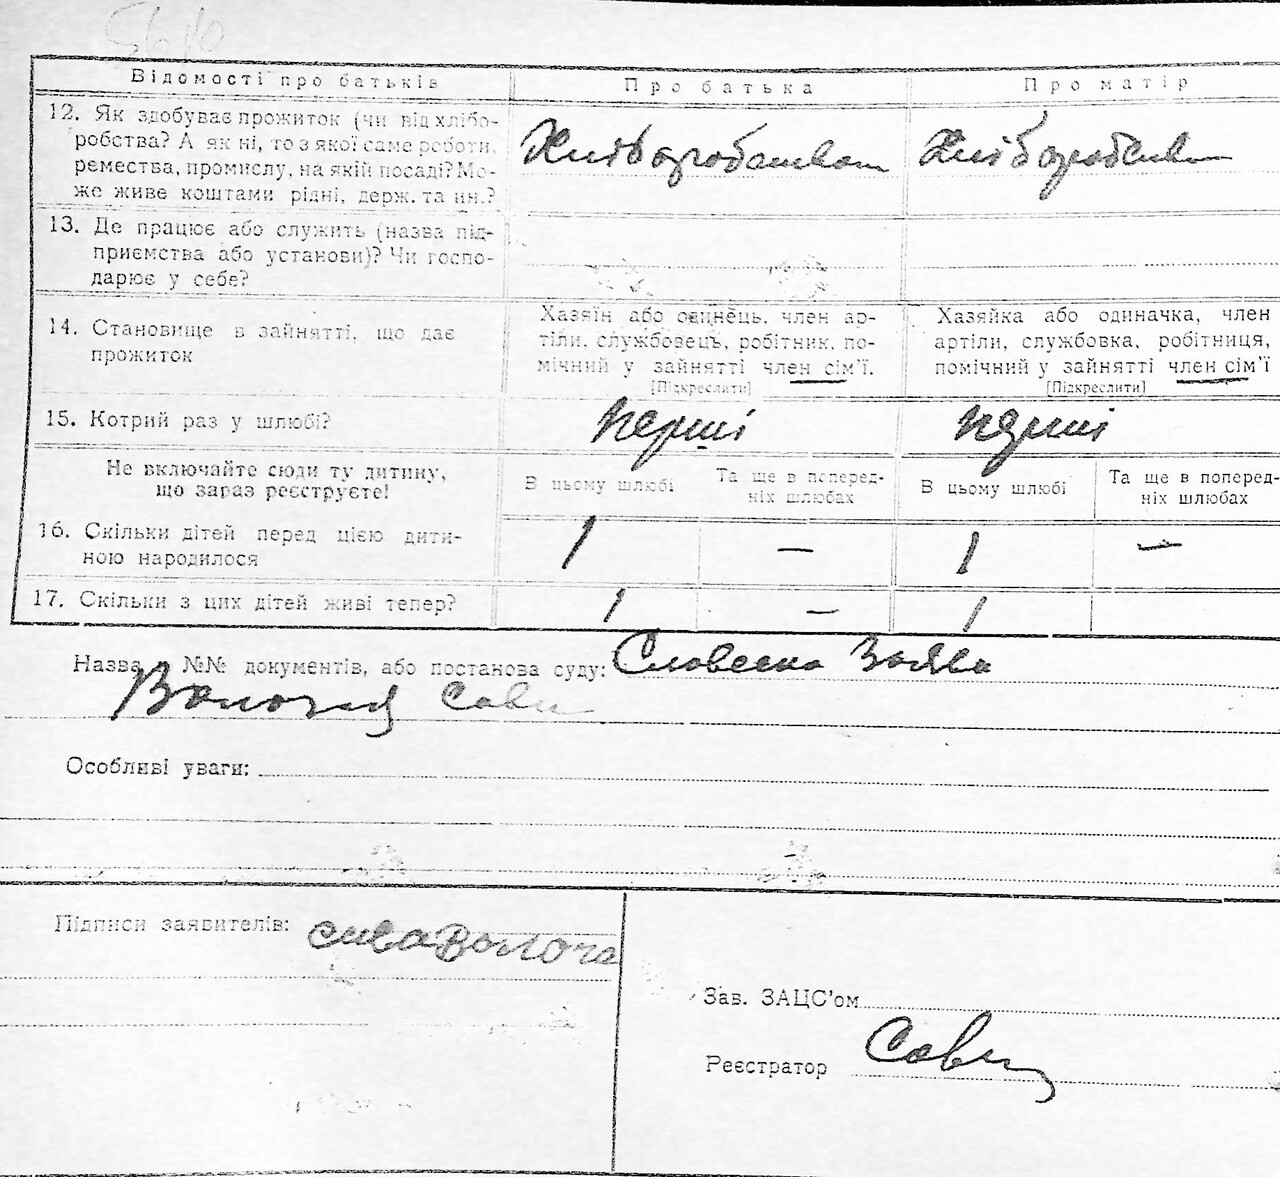 Відомості про батьків
Про батька
Про матір
12. Як здобуває прожиток (чи від хлібо-
робства? А як ні, то з якої саме роботи,
ремества, промислу, на якій посаді? Мо-
же живе коштами рідні, держ. та ин.?
Хліборобством
Хліборобством
13. Де працює або служить (назва під-
приємства або установи)? Чи госпо-
дарює у себе?
14. Становище в зайнятті, що дає
прожиток
Хазяїн або одинець, член ар-
тіли, службовець, робітник, по-
мічний у зайнятті член сім'ї.
[Підкреслити]
Хазяйка або одиначка, член
артіли, службовка, робітниця,
помічний у зайнятті член сім'ї
[Підкреслити]
15. Котрий раз у шлюбі?
перший
перший
Не включайте сюди ту дитину,
що зараз реєструєте!
В цьому шлюбі
Та ще в поперед-
ніх шлюбах
В цьому шлюбі
Та ще в поперед-
ніх шлюбах
16. Скільки дітей перед цією дити-
ною народилося
1 — 1 —
17. Скільки з цих дітей живі тепер?
1 — 1
Назва №№ документів, або постанова суду: Словесна Заява
Сави
Особливі уваги:
Підписи заявителів:
Зав. ЗАЦС'ом
Реєстратор